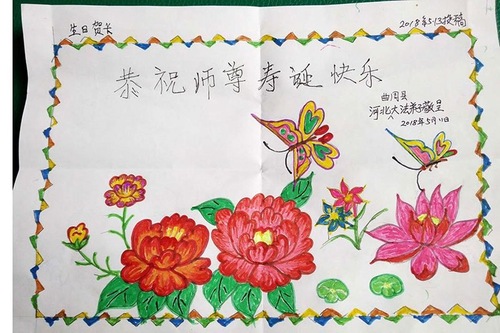 生日贺卡
2018年5.13投稿
恭祝师尊寿诞快乐
曲周县
河北大法弟子敬呈
2018年5月11日